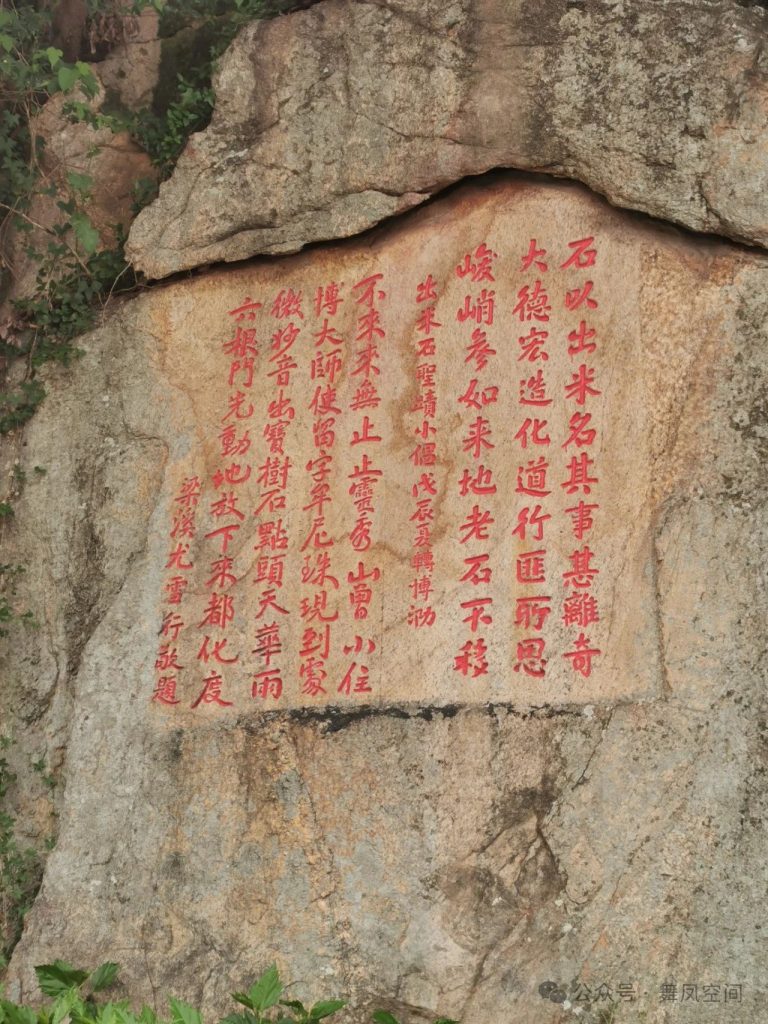 石以出米名其事甚離奇
大德宏造化道行匪所思
峻峭參如来地老石不移
出米石聖蹟小偈戊辰夏轉博泐
不來來無止止靈秀山曾小住
博大師使留字牟尼珠現到處
微妙音出寶樹石點頭天華雨
六根門光動地放下來都化度
梁溪尤雪行敬題
公众号·舞凤空间